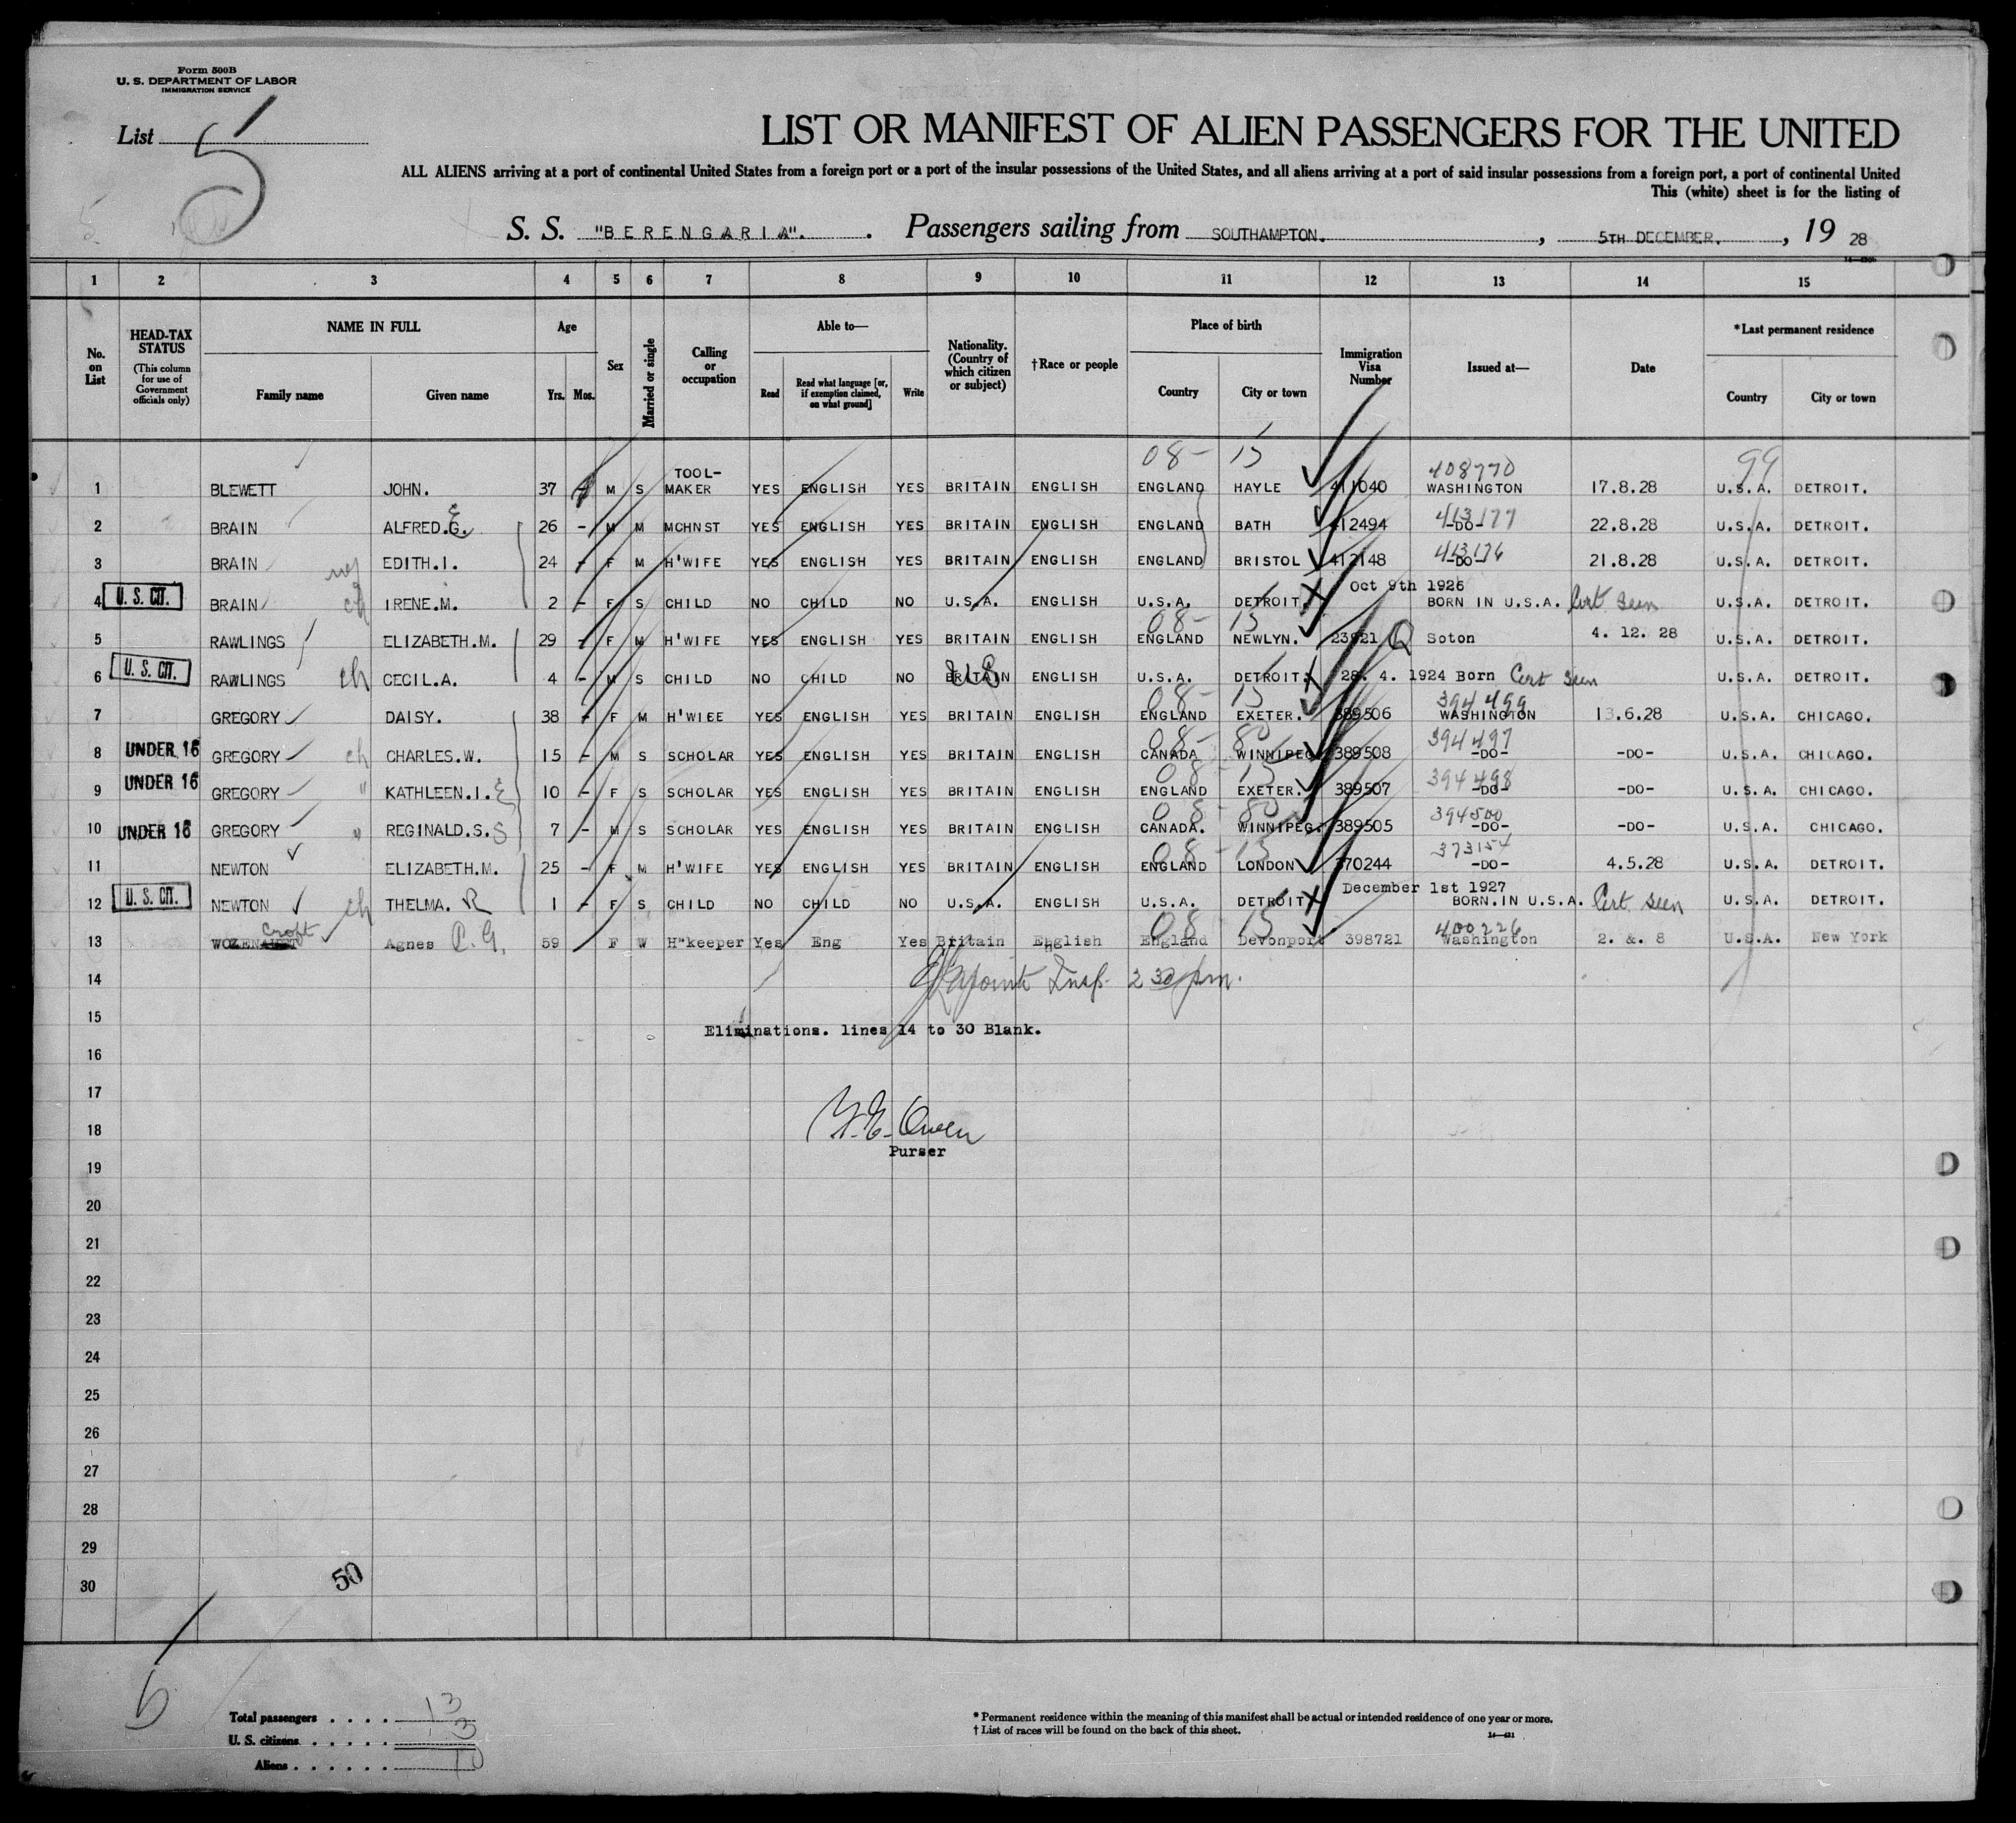 Form 500B
U. S. DEPARTMENT OF LABOR
IMMIGRATION SERVICE
List 5
LIST OR MANIFEST OF ALIEN PASSENGERS FOR THE UNITED
ALL ALIENS arriving at a port of continental United States from a foreign port or a port of the insular possessions of the United States, and all aliens arriving at a port of said insular possessions from a foreign port, a port of continental United
This (white) sheet is for the listing of
S. S. "BERENGARIA". Passengers sailing from SOUTHAMPTON. , 5TH DECEMBER. , 19 28
1 2 3 4 5 6 7 8 9 10 11 12 13 14 15
No. on List
HEAD-TAX STATUS (This column for use of Government officials only)
NAME IN FULL
Family name Given name
Age
Yrs. Mos.
Sex
Married or single
Calling or occupation
Able to—
Read Read what language [or, if exemption claimed, on what ground] Write
Nationality. (Country of which citizen or subject)
†Race or people
Place of birth
Country City or town
Immigration Visa Number
Issued at—
Date
*Last permanent residence
Country City or town
08- 15 408770 99
1 BLEWETT JOHN. 37 M S TOOL-MAKER YES ENGLISH YES BRITAIN ENGLISH ENGLAND HAYLE 411040 WASHINGTON 17.8.28 U.S.A. DETROIT.
2 BRAIN ALFRED.G. E 26 - M M MCHNST YES ENGLISH YES BRITAIN ENGLISH ENGLAND BATH 412494 413177 -DO- 22.8.28 U.S.A. DETROIT.
3 BRAIN EDITH.I. 24 - F M H'WIFE YES ENGLISH YES BRITAIN ENGLISH ENGLAND BRISTOL 412148 413176 -DO- 21.8.28 U.S.A. DETROIT.
Oct 9th 1926
4 U. S. CIT. BRAIN ch IRENE.M. 2 - F S CHILD NO CHILD NO U.S.A. ENGLISH U.S.A. DETROIT. BORN IN U.S.A. Cert seen U.S.A. DETROIT.
08- 15
5 RAWLINGS ELIZABETH.M. 29 - F M H'WIFE YES ENGLISH YES BRITAIN ENGLISH ENGLAND NEWLYN. 23921 Q Soton 4. 12. 28 U.S.A. DETROIT.
6 U. S. CIT. RAWLINGS ch CECIL.A. 4 - M S CHILD NO CHILD NO BRITAIN US ENGLISH U.S.A. DETROIT. 28. 4. 1924 Born Cert seen U.S.A. DETROIT.
08- 15 394499
7 GREGORY DAISY. 38 - F M H'WIEE YES ENGLISH YES BRITAIN ENGLISH ENGLAND EXETER. 389506 WASHINGTON 13.6.28 U.S.A. CHICAGO.
08- 80 394497
8 UNDER 16 GREGORY ch CHARLES.W. 15 - M S SCHOLAR YES ENGLISH YES BRITAIN ENGLISH CANADA WINNIPEG 389508 -DO- -DO- U.S.A. CHICAGO.
08- 15 394498
9 UNDER 16 GREGORY " KATHLEEN.I. E 10 - F S SCHOLAR YES ENGLISH YES BRITAIN ENGLISH ENGLAND EXETER. 389507 -DO- -DO- U.S.A. CHICAGO.
08- 80 394500
10 UNDER 16 GREGORY " REGINALD.S. S 7 - M S SCHOLAR YES ENGLISH YES BRITAIN ENGLISH CANADA. WINNIPEG. 389505 -DO- -DO- U.S.A. CHICAGO.
08- 15 373154
11 NEWTON ELIZABETH.M. 25 - F M H'WIFE YES ENGLISH YES BRITAIN ENGLISH ENGLAND LONDON 370244 -DO- 4.5.28 U.S.A. DETROIT.
December 1st 1927
12 U. S. CIT. NEWTON ch THELMA. R 1 - F S CHILD NO CHILD NO U.S.A. ENGLISH U.S.A. DETROIT BORN.IN U.S.A. Cert seen U.S.A. DETROIT.
croft 08 15 400226
13 WOZEN Agnes C. G. 59 F W H"keeper Yes Eng Yes Britain English England Devonport 398721 Washington 2. &. 8 U.S.A. New York
14 Insp. 2 30 pm.
15 Eliminations. lines 14 to 30 Blank.
16
17
18 Owen
Purser
19
20
21
22
23
24
25
26
27
28
29
30
50
5
Total passengers . . . . 13
U. S. citizens . . . . . . 3
Aliens . . . . . . 10
* Permanent residence within the meaning of this manifest shall be actual or intended residence of one year or more.
† List of races will be found on the back of this sheet.